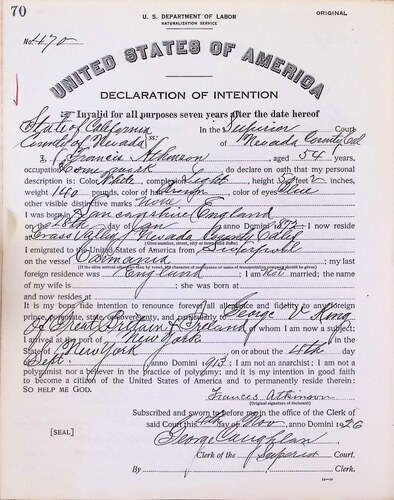 70
U. S. DEPARTMENT OF LABOR
NATURALIZATION SERVICE
ORIGINAL
No. 470
UNITED STATES OF AMERICA
DECLARATION OF INTENTION
Invalid for all purposes seven years after the date hereof
State of California
County of Nevada ss: In the Superior Court of Nevada County Cal
I, Francis Atkinson, aged 54 years,
occupation Home work, do declare on oath that my personal
description is: Color White, complexion Light, height 5 feet 2 inches,
weight 140 pounds, color of hair Brown, color of eyes Blue
other visible distinctive marks none
I was born in Lancashire England
on the 28th day of Jan, anno Domini 1872; I now reside
at Grass Valley Nevada County Calif
(Give number, street, city or town, and State.)
I emigrated to the United States of America from Liverpool
on the vessel Carmania; my last
(If the alien arrived otherwise than by vessel, the character of conveyance or name of transportation company should be given)
foreign residence was England; I am not married; the name
of my wife is; she was born at
and now resides at
It is my bona fide intention to renounce forever all allegiance and fidelity to any foreign
prince, potentate, state, or sovereignty, and particularly to George V King
of Great Britain & Ireland, of whom I am now a subject;
I arrived at the port of New York, in the
State of New York, on or about the 4th day
of Sept, anno Domini 1913; I am not an anarchist; I am not a
polygamist nor a believer in the practice of polygamy; and it is my intention in good faith
to become a citizen of the United States of America and to permanently reside therein:
SO HELP ME GOD.
Francis Atkinson
(Original signature of declarant)
Subscribed and sworn to before me in the office of the Clerk of
said Court this day of Nov, anno Domini 1926
[SEAL]
George Caughlan
Clerk of the Superior Court.
By, Clerk.